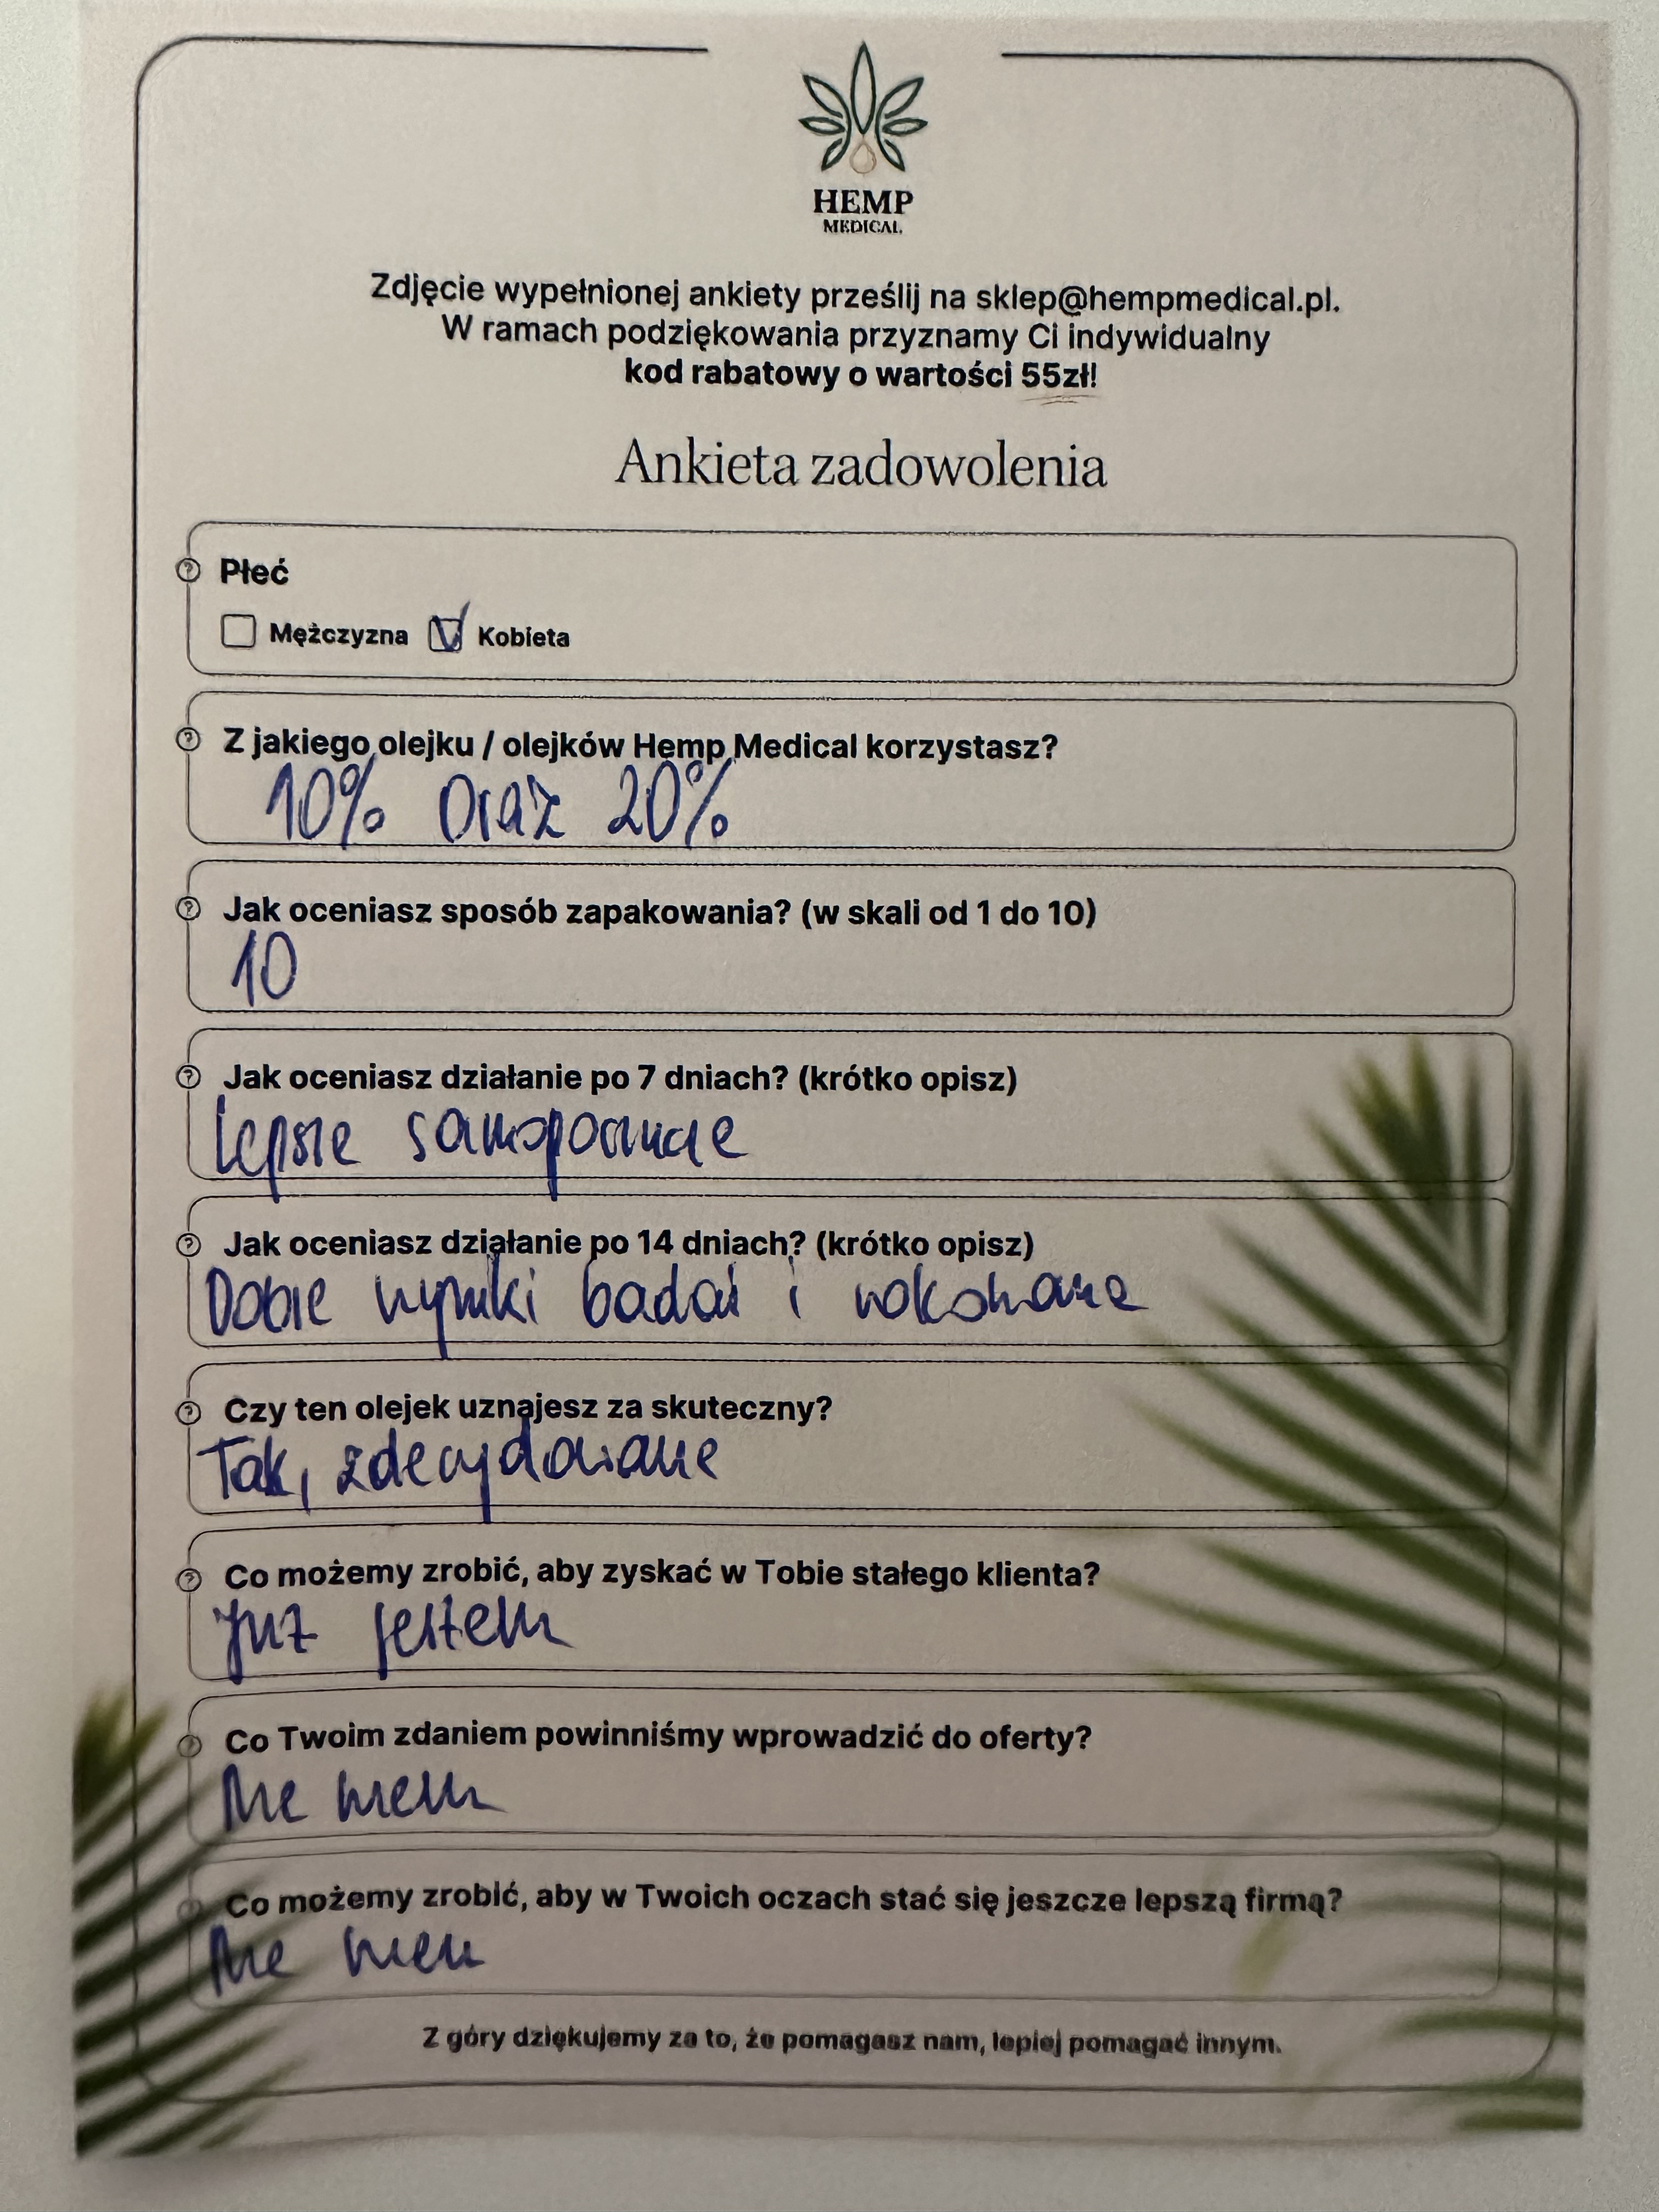 HEMP
MEDICAL
Zdjęcie wypełnionej ankiety prześlij na sklep@hempmedical.pl.
W ramach podziękowania przyznamy Ci indywidualny
kod rabatowy o wartości 55zł!
Ankieta zadowolenia
Płeć
Mężczyzna Kobieta
Z jakiego olejku / olejków Hemp Medical korzystasz?
10% oraz 20%
Jak oceniasz sposób zapakowania? (w skali od 1 do 10)
10
Jak oceniasz działanie po 7 dniach? (krótko opisz)
Lepsze samopoczucie
Jak oceniasz działanie po 14 dniach? (krótko opisz)
Dobre wyniki badań i rokowanie
Czy ten olejek uznajesz za skuteczny?
Tak, zdecydowanie
Co możemy zrobić, aby zyskać w Tobie stałego klienta?
Już jestem
Co Twoim zdaniem powinniśmy wprowadzić do oferty?
Nie wiem
Co możemy zrobić, aby w Twoich oczach stać się jeszcze lepszą firmą?
Nie wiem
Z góry dziękujemy za to, że pomagasz nam, lepiej pomagać innym.